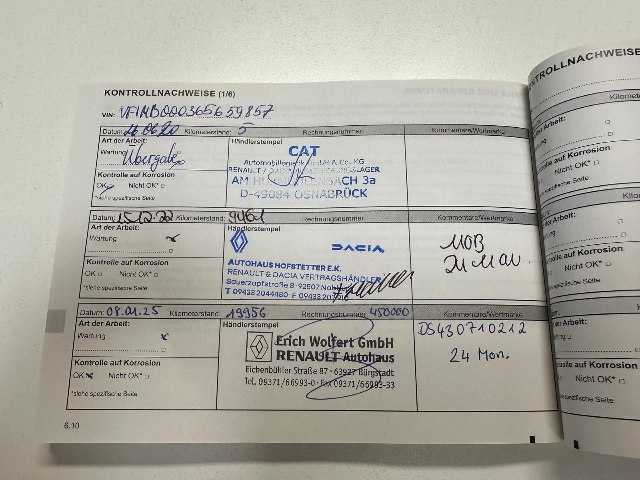 KONTROLLNACHWEISE (1/6)
VIN: VF1MB000365659857
Datum 26.06.20 Kilometerstand: 5 Rechnungsnummer Kommentare/Wertmarke
Art der Arbeit:
Wartung
Übergabe
Kontrolle auf Korrosion
OK Nicht OK*
*siehe spezifische Seite
Händlerstempel
CAT
Automobillogistik GmbH & Co. KG
AM 3a
D-49084 OSNABRÜCK
Datum 15.12.22 Kilometerstand: 9461 Rechnungsnummer Kommentare/Wertmarke
Art der Arbeit:
Wartung x
Kontrolle auf Korrosion
OK Nicht OK*
*siehe spezifische Seite
Händlerstempel
DACIA
AUTOHAUS HOFSTETTER E.K.
RENAULT & DACIA VERTRAGSHÄNDLER
Sauerzapfstraße 8 92507
T 09438 2044480 F 09438
MOB
Datum 08.01.25 Kilometerstand: 19956 Rechnungsnummer 450000 Kommentare/Wertmarke
Art der Arbeit:
Wartung x
Kontrolle auf Korrosion
OK x Nicht OK*
*siehe spezifische Seite
Händlerstempel
Erich Wolfert GmbH
RENAULT Autohaus
Eichenbühler Straße 87 · 63927 Bürgstadt
Tel. 09371/66993-0 · Fax 09371/66993-33
DS430710212
24 Mon.
6.10
KONTROLLNACHWEISE
Datum
Art der Arbeit:
Wartung
Kontrolle auf Korrosion
OK Nicht OK*
*siehe spezifische Seite
Art der Arbeit:
Wartung
Kontrolle auf Korrosion
OK Nicht OK*
*siehe spezifische Seite
Art der Arbeit:
Wartung
Kontrolle auf Korrosion
OK Nicht OK*
*siehe spezifische Seite